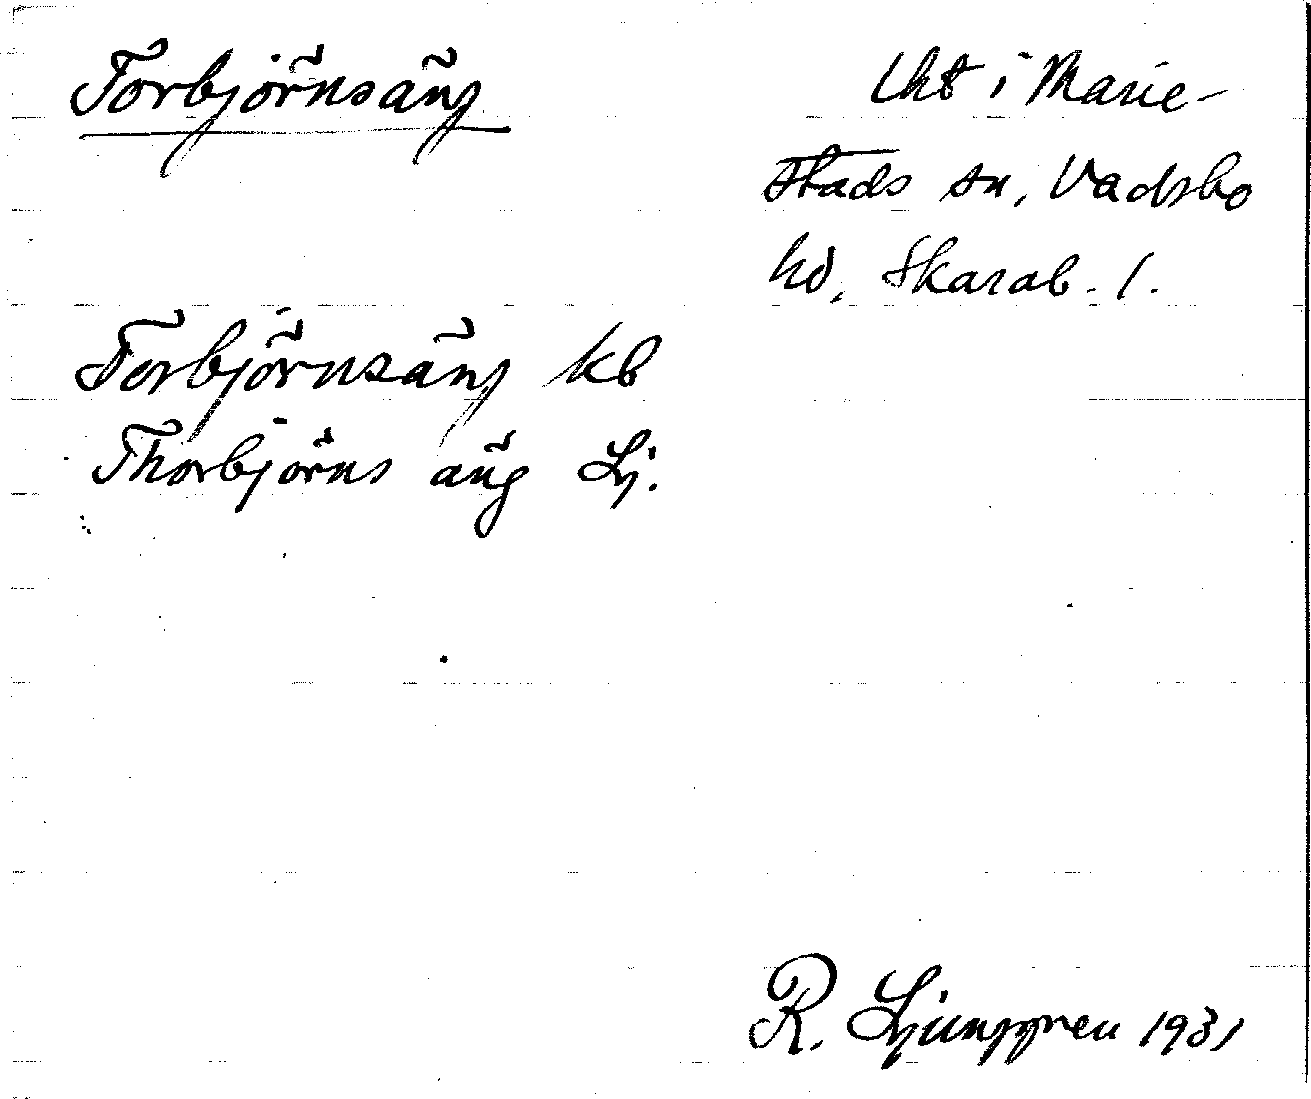 Torbjörnsäng
Lht i Marie-
stads sn, Vadsbo
hd, Skarab. l.
Torbjörnsäng kb
Thorbjörns äng Lj.
R. Ljunggren 1931